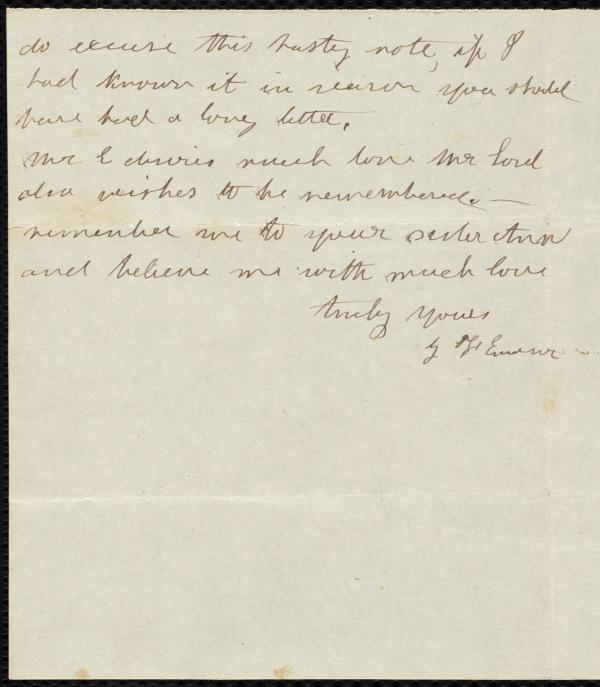 do excuse this hasty note, if I
had known it in season you should
have had a long letter.
Mr E desires much love Mr Lord
also wishes to be remembered. —
remember me to your sister Ann
and believe me with much love
truly yours
Emerson